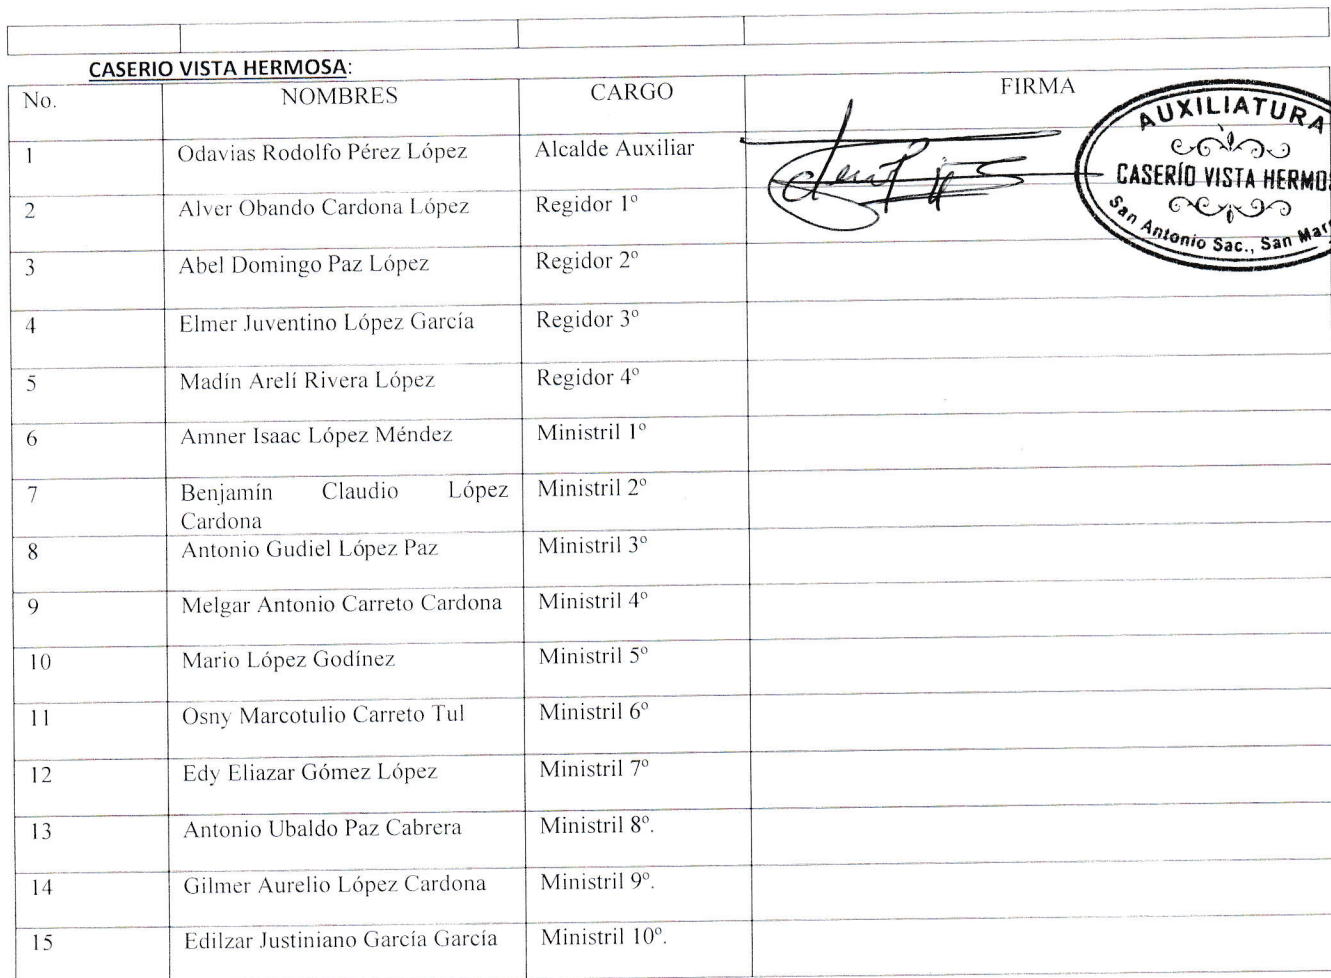 CASERIO VISTA HERMOSA:
No. NOMBRES CARGO FIRMA
1 Odavias Rodolfo Pérez López Alcalde Auxiliar
2 Alver Obando Cardona López Regidor 1º
3 Abel Domingo Paz López Regidor 2º
4 Elmer Juventino López García Regidor 3º
5 Madín Arelí Rivera López Regidor 4º
6 Amner Isaac López Méndez Ministril 1º
7 Benjamín Claudio López Ministril 2º
Cardona
8 Antonio Gudiel López Paz Ministril 3º
9 Melgar Antonio Carreto Cardona Ministril 4º
10 Mario López Godínez Ministril 5º
11 Osny Marcotulio Carreto Tul Ministril 6º
12 Edy Eliazar Gómez López Ministril 7º
13 Antonio Ubaldo Paz Cabrera Ministril 8º.
14 Gilmer Aurelio López Cardona Ministril 9º.
15 Edilzar Justiniano García García Ministril 10º.
AUXILIATURA
CASERÍO VISTA HERMOS
San Antonio Sac., San Mar